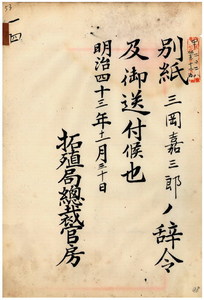 別紙三岡嘉三郎ノ辞令
及御送付候也
明治四十三年十一月三十日
拓殖局總裁官房